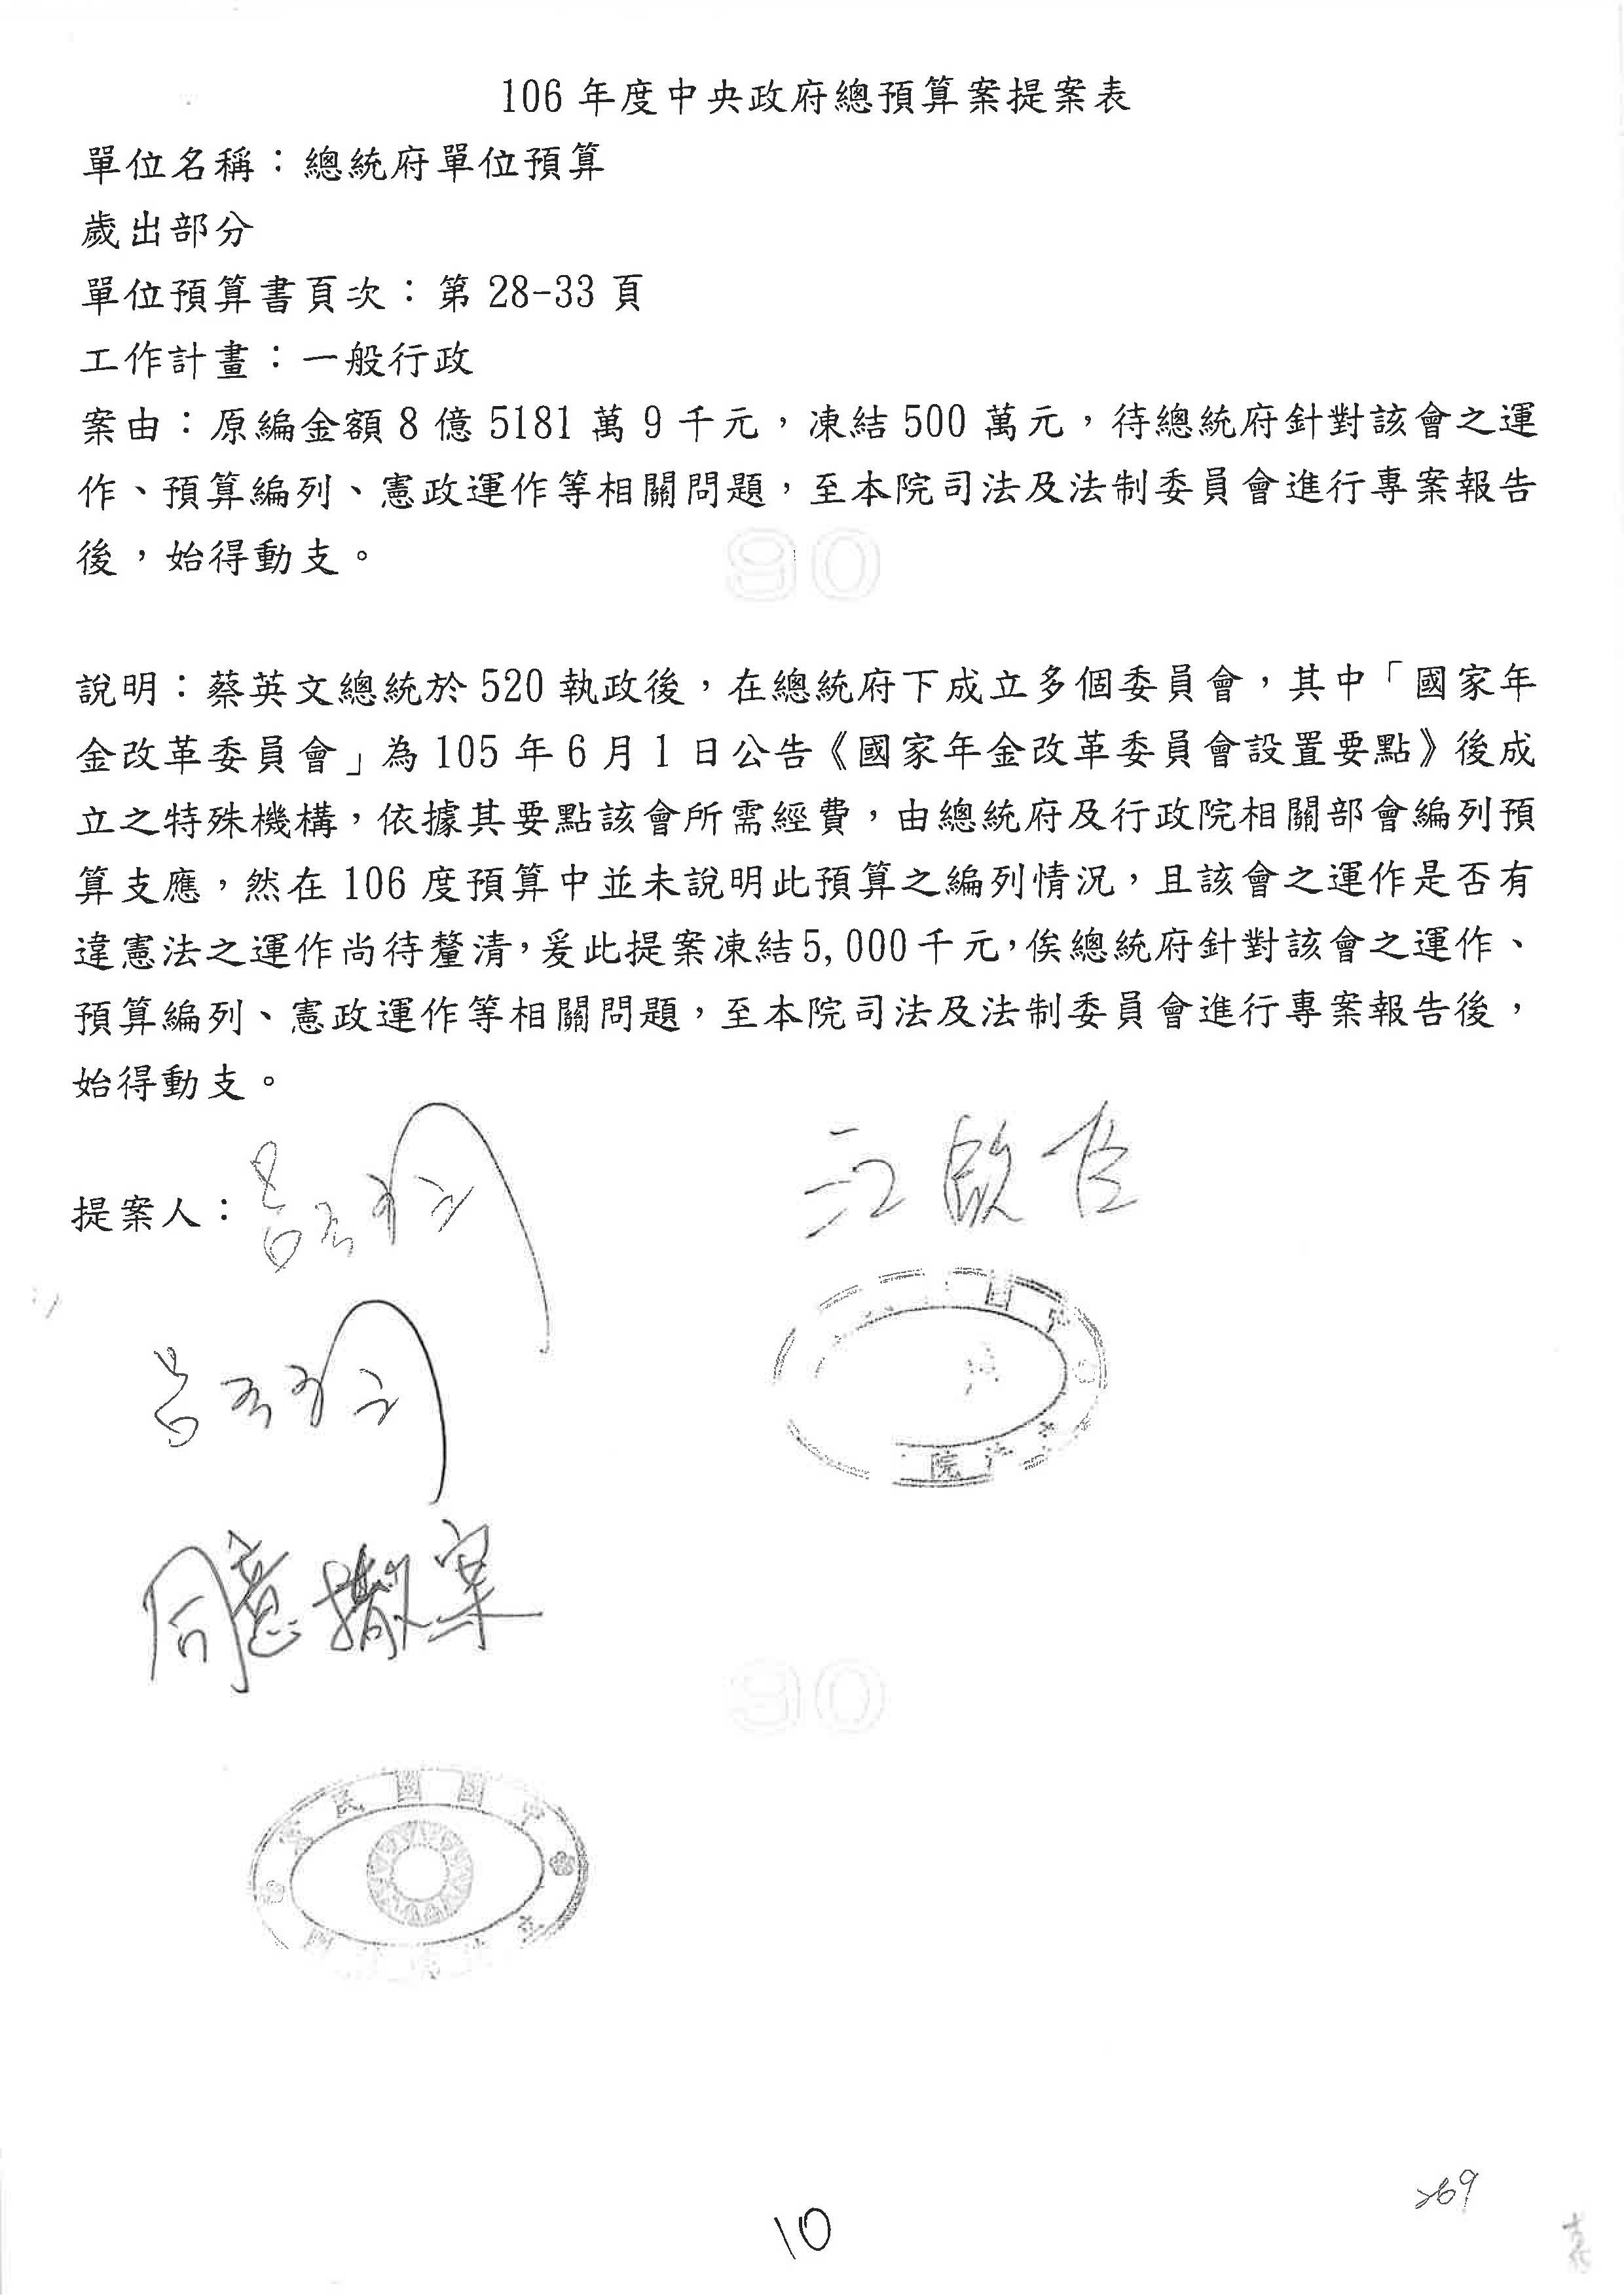 106 年度中央政府總預算案提案表
單位名稱：總統府單位預算
歲出部分
單位預算書頁次：第 28-33 頁
工作計畫：一般行政
案由：原編金額 8 億 5181 萬 9 千元，凍結 500 萬元，待總統府針對該會之運
作、預算編列、憲政運作等相關問題，至本院司法及法制委員會進行專案報告
後，始得動支。
說明：蔡英文總統於 520 執政後，在總統府下成立多個委員會，其中「國家年
金改革委員會」為 105 年 6 月 1 日公告《國家年金改革委員會設置要點》後成
立之特殊機構，依據其要點該會所需經費，由總統府及行政院相關部會編列預
算支應，然在 106 度預算中並未說明此預算之編列情況，且該會之運作是否有
違憲法之運作尚待釐清，爰此提案凍結 5,000 千元，俟總統府針對該會之運作、
預算編列、憲政運作等相關問題，至本院司法及法制委員會進行專案報告後，
始得動支。
提案人：
江啟臣
同意撤案
10
269